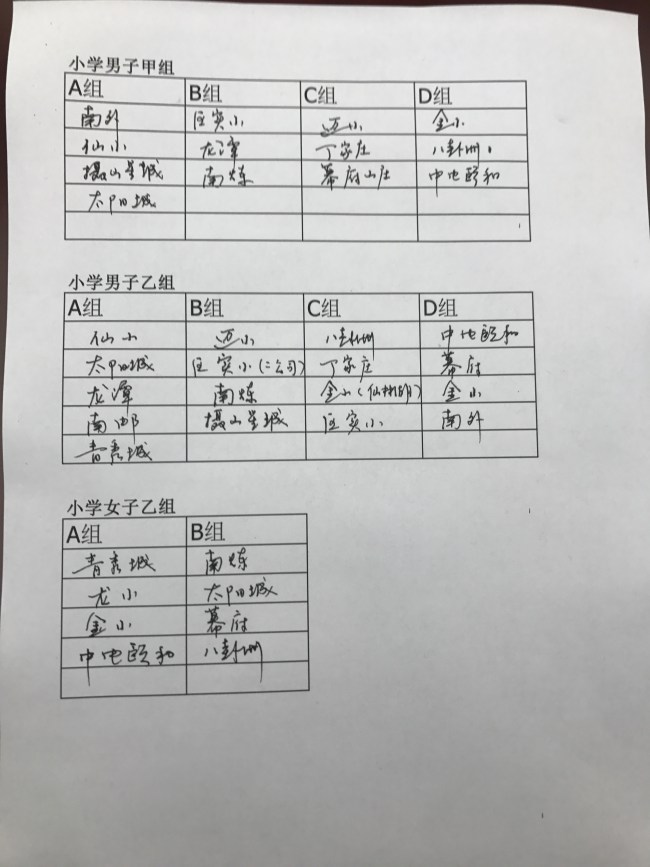 小学男子甲组
A组 B组 C组 D组
南外 区实小 迈小 金小
仙小 龙潭 丁家庄 八卦洲
摄山星城 南炼 幕府山庄 中电颐和
太阳城
小学男子乙组
A组 B组 C组 D组
仙小 迈小 八卦洲 中电颐和
太阳城 区实小(二公司) 丁家庄 幕府
龙潭 南炼 金小(仙林湖) 金小
南邮 摄山星城 区实小 南外
青秀城
小学女子乙组
A组 B组
青秀城 南炼
龙小 太阳城
金小 幕府
中电颐和 八卦洲